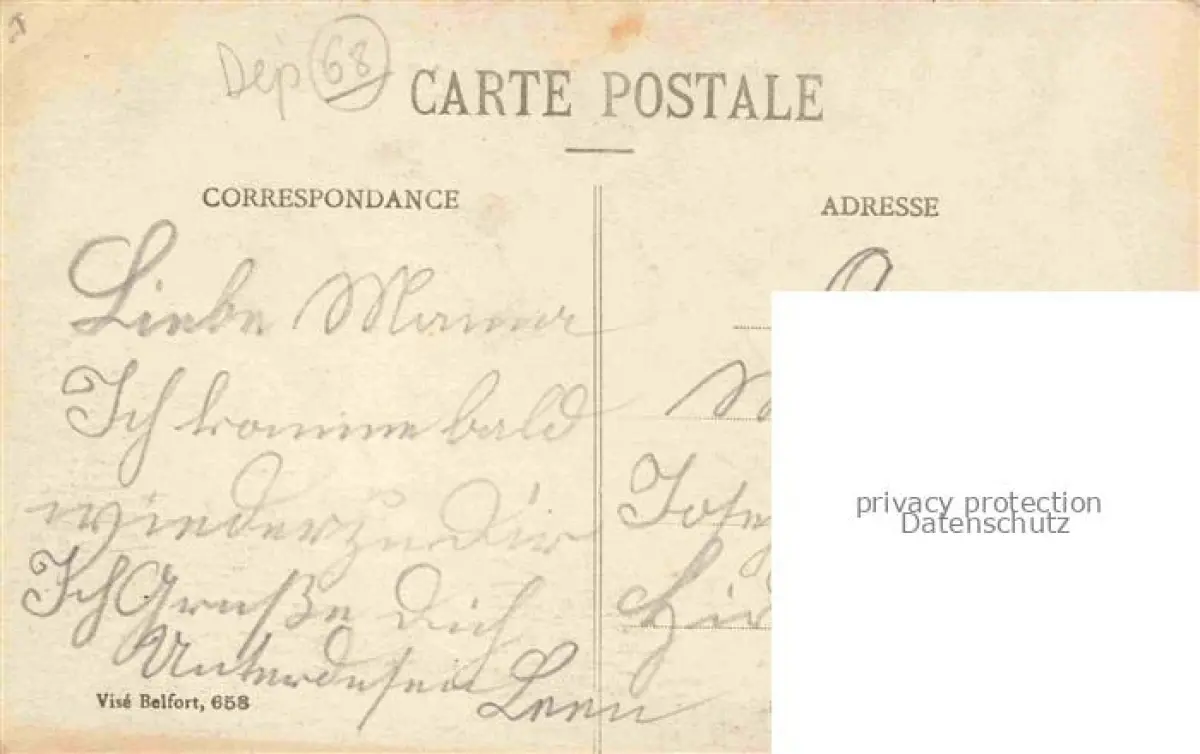 Dép 68
CARTE POSTALE
CORRESPONDANCE
ADRESSE
Liebe Mama
Ich komme bald
wieder zu Dir
Ich Gruße Dich
Visé Belfort, 658
privacy protection
Datenschutz